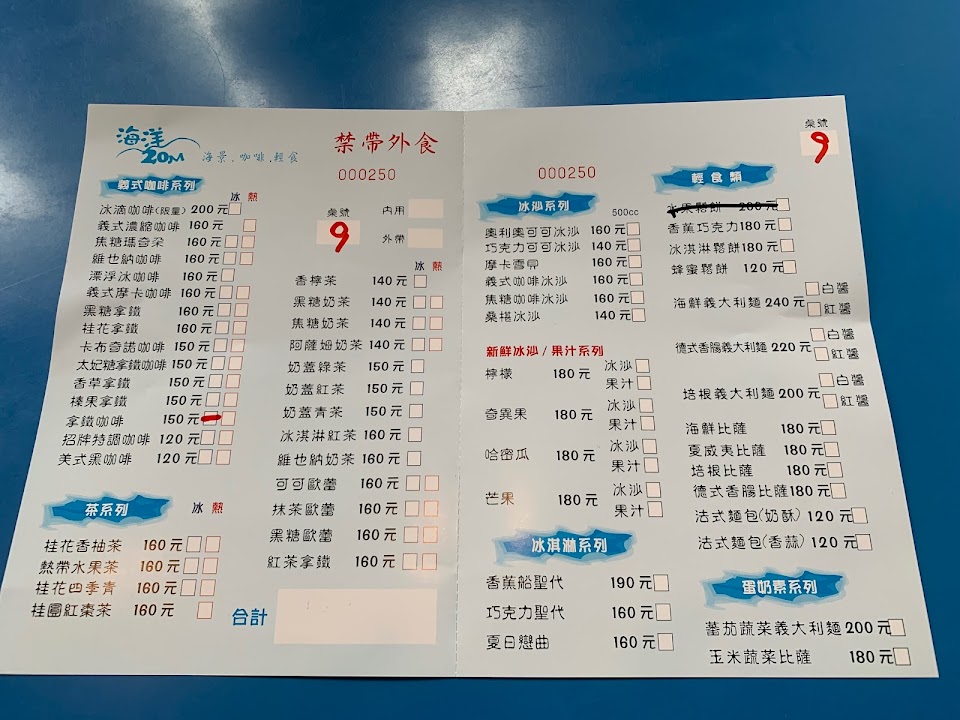 海洋
20M
海景.咖啡.輕食
禁帶外食
000250
義式咖啡系列
冰 熱
冰滴咖啡(限量) 200元
義式濃縮咖啡 160元
焦糖瑪奇朵 160元
維也納咖啡 160元
漂浮冰咖啡 160元
義式摩卡咖啡 160元
黑糖拿鐵 160元
桂花拿鐵 160元
卡布奇諾咖啡 150元
太妃糖拿鐵咖啡 150元
香草拿鐵 150元
榛果拿鐵 150元
拿鐵咖啡 150元
招牌特調咖啡 120元
美式黑咖啡 120元
茶系列
冰 熱
桂花香柚茶 160元
熱帶水果茶 160元
桂花四季青 160元
桂圓紅棗茶 160元
桌號
9
內用
外帶
冰 熱
香檸茶 140元
黑糖奶茶 140元
焦糖奶茶 140元
阿薩姆奶茶 140元
奶蓋綠茶 150元
奶蓋紅茶 150元
奶蓋青茶 150元
冰淇淋紅茶 160元
維也納奶茶 160元
可可歐蕾 160元
抹茶歐蕾 160元
黑糖歐蕾 160元
紅茶拿鐵 160元
合計
000250
冰沙系列
500cc
奧利奧可可冰沙 160元
巧克力可可冰沙 140元
摩卡雪 160元
義式咖啡冰沙 160元
焦糖咖啡冰沙 160元
桑椹冰沙 140元
新鮮冰沙/果汁系列
檸檬 180元 冰沙
果汁
奇異果 180元 冰沙
果汁
哈密瓜 180元 冰沙
果汁
芒果 180元 冰沙
果汁
冰淇淋系列
香蕉船聖代 190元
巧克力聖代 160元
夏日戀曲 160元
桌號
9
輕食類
水果鬆餅 200元
香蕉巧克力 180元
冰淇淋鬆餅 180元
蜂蜜鬆餅 120元
海鮮義大利麵 240元 白醬
紅醬
德式香腸義大利麵 220元 白醬
紅醬
培根義大利麵 200元 白醬
紅醬
海鮮比薩 180元
夏威夷比薩 180元
培根比薩 180元
德式香腸比薩 180元
法式麵包(奶酥) 120元
法式麵包(香蒜) 120元
蛋奶素系列
蕃茄蔬菜義大利麵 200元
玉米蔬菜比薩 180元